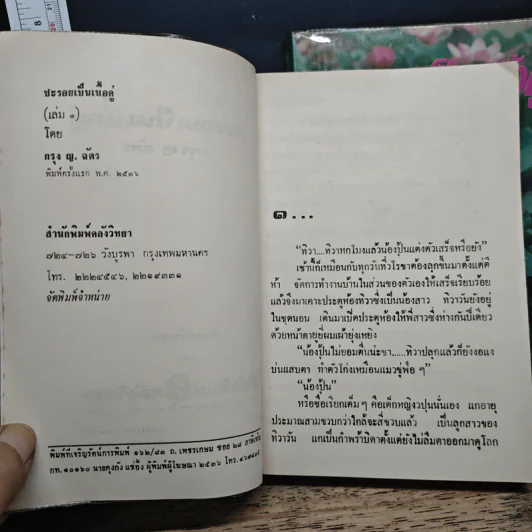 ชะรอยเป็นเนื้อคู่
(เล่ม ๑)
โดย
กรุง ญ. ฉัตร
พิมพ์ครั้งแรก พ.ศ. ๒๕๓๖
สำนักพิมพ์คลังวิทยา
๗๒๔-๗๒๖ วังบูรพา กรุงเทพมหานคร
โทร. ๒๒๒๔๕๔๖, ๒๒๑๙๓๓๑
จัดพิมพ์จำหน่าย
พิมพ์ที่เจริญรัตน์การพิมพ์ ๑๖๒/๘๓ ถ. เพชรเกษม ซอย ๒๘ ภาษีเจริญ
กท. ๑๐๑๖๐ ผู้พิมพ์ผู้โฆษณา ๒๕๓๖ โทร.
๑...
“ทิวา....ทิวาหกโมงแล้วน้องปุ้นแต่งตัวเสร็จหรือยัง”
เช้านี้ก็เหมือนกับทุกวันที่วโรชาต้องลุกขึ้นมาตั้งแต่ตี
ห้า จัดการทำงานบ้านในส่วนของตัวเองให้เสร็จเรียบร้อย
แล้วจึงมาเคาะประตูห้องทิวาซึ่งเป็นน้องสาว ทิวาวันยังอยู่
ในชุดนอน เดินมาเปิดประตูห้องให้พี่สาวซึ่งห่างกันปีเดียว
ด้วยหน้าตายู่ยี่ผมเผ้ายุ่งเหยิง
“น้องปุ้นไม่ยอมตื่นน่ะซา.....ทิวาปลุกแล้วก็ยังงอแง
บ่นแสบตา ทำตัวโก่งเหมือนแมวขู่ฟ่อ ๆ”
“น้องปุ้น”
หรือชื่อเรียกเต็ม ๆ คือเด็กหญิงวปุนนั่นเอง แกอายุ
ประมาณสามขวบกว่าใกล้จะสี่ขวบแล้ว เป็นลูกสาวของ
ทิวาวัน แกเป็นกำพร้าบิดาตั้งแต่ยังไม่ลืมตาออกมาดูโลก